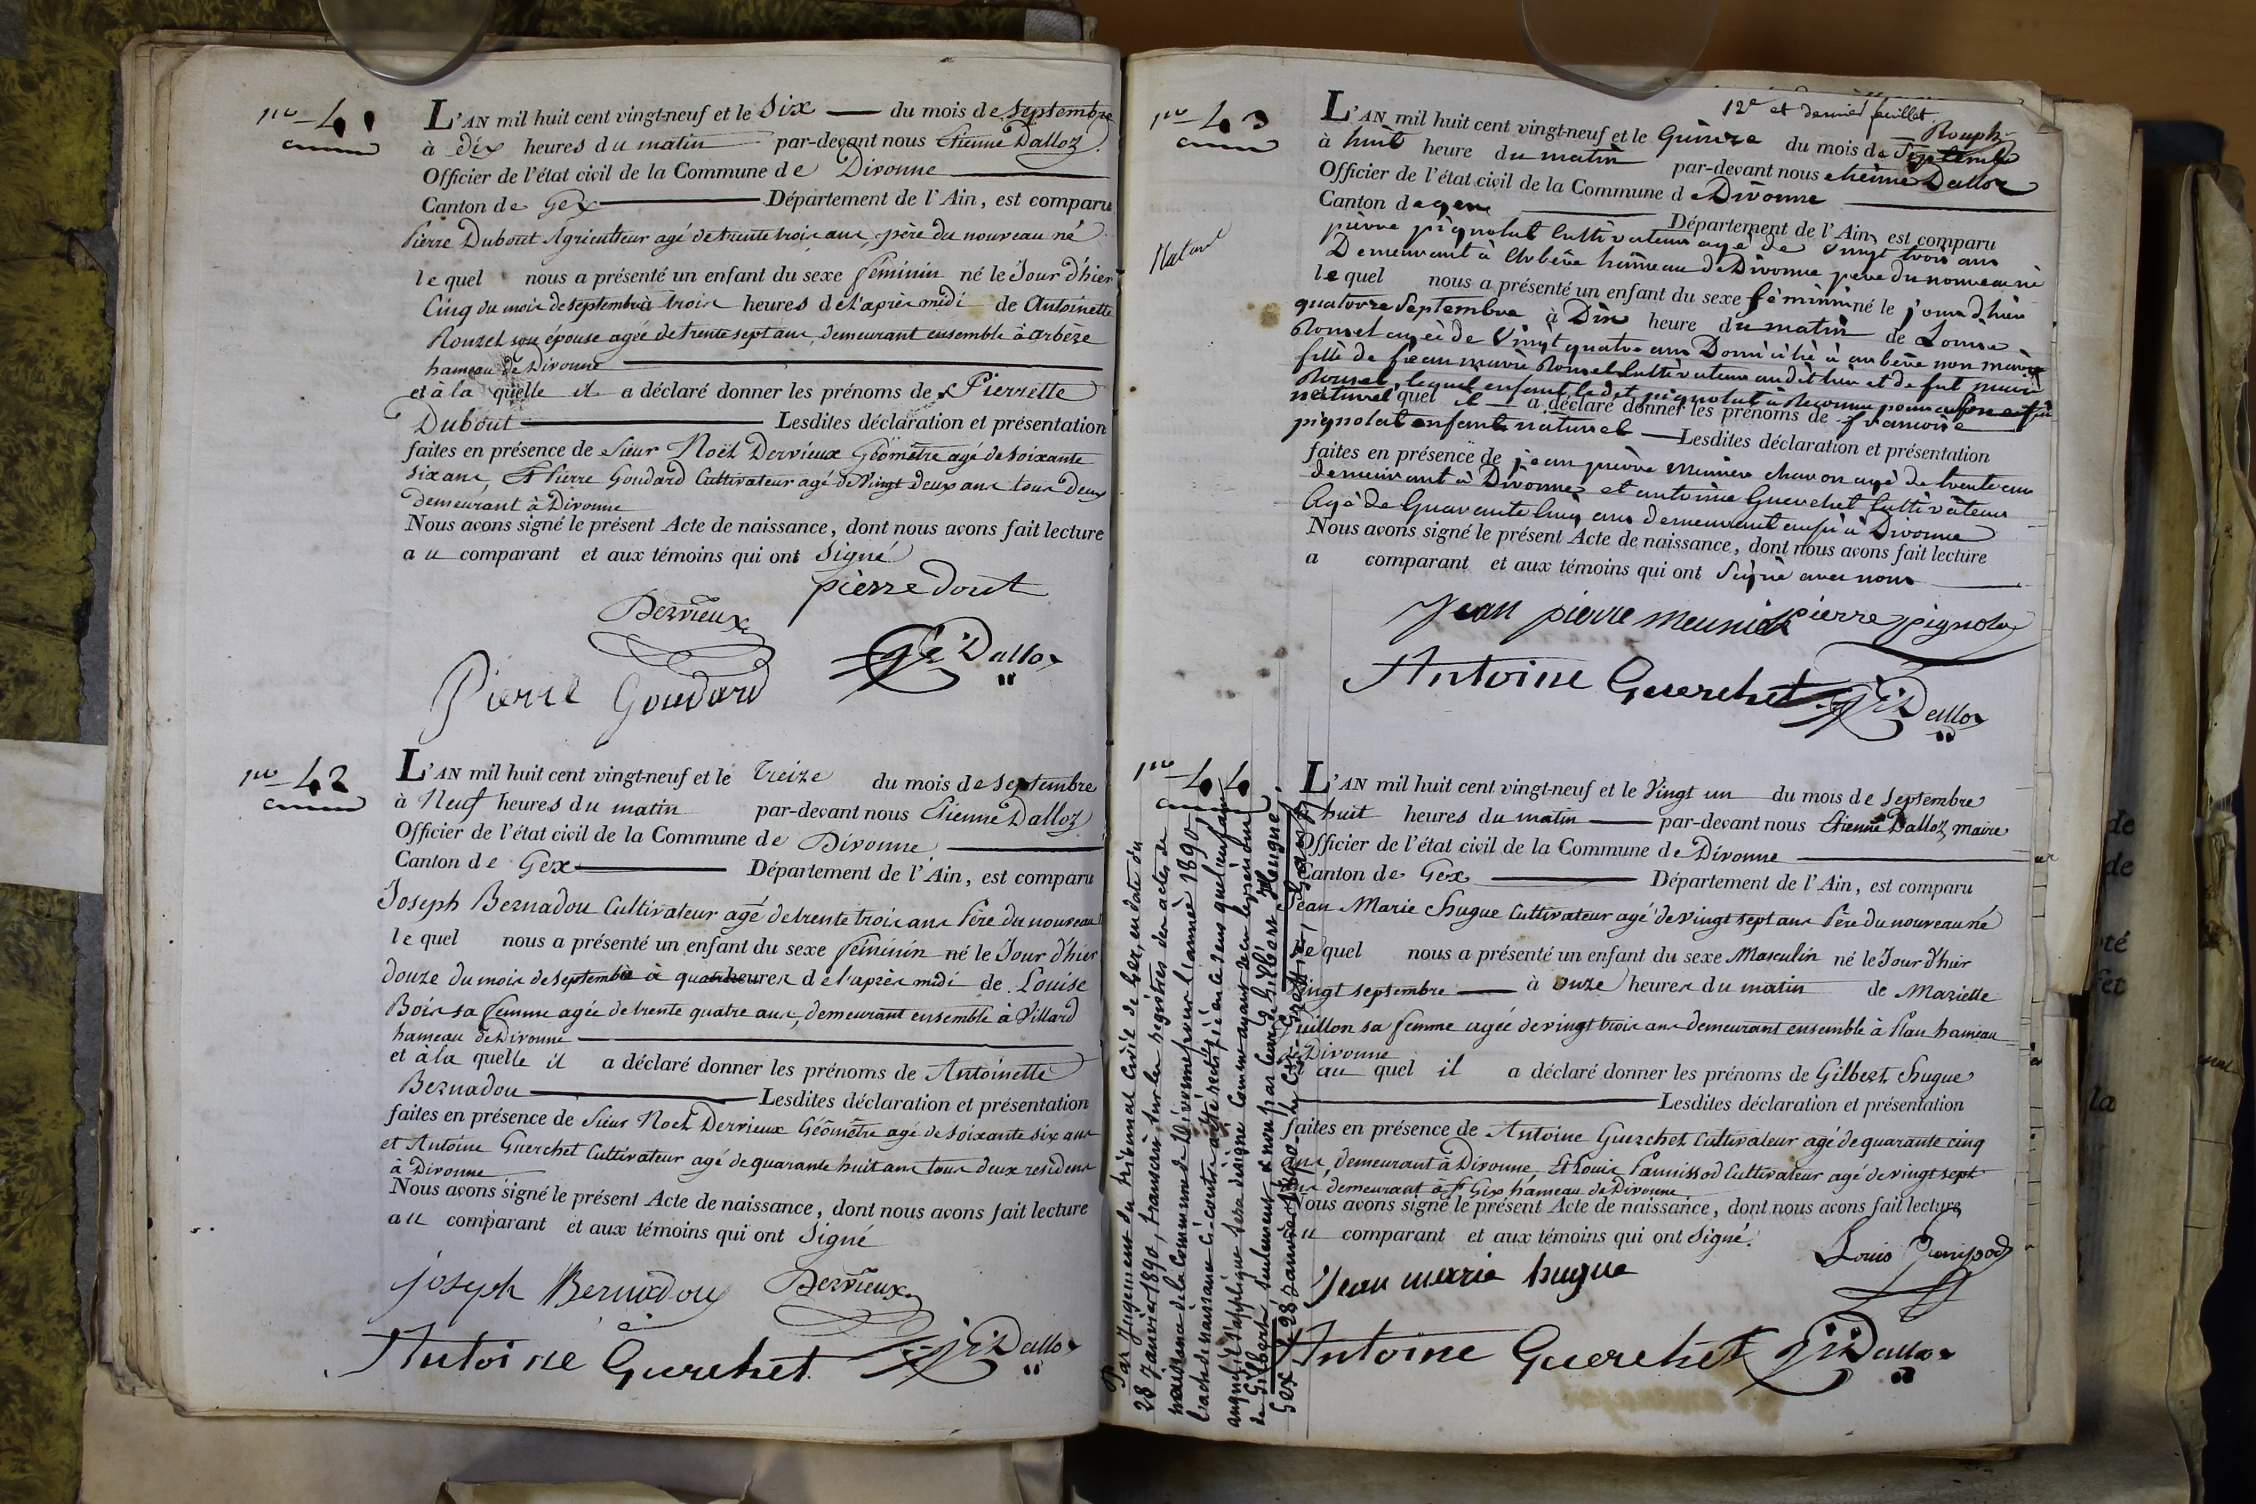 no 41
L'AN mil huit cent vingt-neuf et le Six du mois de Septembre
à dix heures du matin par-devant nous Etienne Dalloz
Officier de l'état civil de la Commune de Divonne
Canton de Gex Département de l'Ain, est comparu
Pierre Dubout Agriculteur agé de trente trois ans, père du nouveau né
le quel nous a présenté un enfant du sexe féminin né le Jour d'hier
Cinq du mois de septembre à trois heures de l'après midi de Antoinette
Rouzet son épouse agée de trente sept ans, demeurant ensemble à arbèze
hameau de Divonne
et à la quelle il a déclaré donner les prénoms de Pierrette
Dubout Lesdites déclaration et présentation
faites en présence de Sieur Noël Dervieux Géomètre agé de soixante
six ans, Et Pierre Goudard Cultivateur agé de Vingt deux ans tous deux
demeurant à Divonne
Nous avons signé le présent Acte de naissance, dont nous avons fait lecture
au comparant et aux témoins qui ont Signé
pierre dout
Dervieux
Dalloz
Pierre Goudard
no 42
L'AN mil huit cent vingt-neuf et le Treize du mois de Septembre
à Neuf heures du matin par-devant nous Etienne Dalloz
Officier de l'état civil de la Commune de Divonne
Canton de Gex Département de l'Ain, est comparu
Joseph Bernadou Cultivateur agé de trente trois ans Père du nouveau
le quel nous a présenté un enfant du sexe féminin né le Jour d'hier
douze du mois de septembre à quatre heures de l'après midi de Louise
Bois sa femme agée de trente quatre ans, demeurant ensemble à Villard
hameau de Divonne
et à la quelle il a déclaré donner les prénoms de Antoinette
Bernadou Lesdites déclaration et présentation
faites en présence de Sieur Noël Dervieux Géomètre agé de soixante six ans
et Antoine Guerchet Cultivateur agé de quarante huit ans tous deux residens
à Divonne
Nous avons signé le présent Acte de naissance, dont nous avons fait lecture
au comparant et aux témoins qui ont Signé
joseph Bernadou Dervieux
Antoine Guerchet Dalloz
12e et dernier feuillet
no 43
L'AN mil huit cent vingt-neuf et le Quinze du mois de Septembre
à huit heure du matin par-devant nous etienne Dalloz
Officier de l'état civil de la Commune de Divonne
Canton de gex Département de l'Ain, est comparu
Naturel
pierre pignolat Cultivateur agé de Vingt trois ans
Demeurant à Arbère hameau de Divonne pere du nouveau né
le quel nous a présenté un enfant du sexe féminin né le jour d'hier
quatorze Septembre à Dix heure du matin de Louise
Rouset agée de Vingt quatre ans Domicilié à arbère non marié
fille de jean marie Rouset Cultivateur audit lieu et de
Rouset, lequel enfant ledit pignolat a Reconnu pour
naturel quel il a déclaré donner les prénoms de francoise
pignolat enfant naturel Lesdites déclaration et présentation
faites en présence de jean pierre Meunier charon agé de trente ans
demeurant à Divonne et antoine Guerchet Cultivateur
Agé de Quarante Cinq ans demeurant aussi à Divonne
Nous avons signé le présent Acte de naissance, dont nous avons fait lecture
a comparant et aux témoins qui ont Signé avec nous
Jean pierre meunier pierre pignola
Antoine Guerchet Dalloz
no 44
L'AN mil huit cent vingt-neuf et le Vingt un du mois de Septembre
huit heures du matin par-devant nous Etienne Dalloz, maire
Officier de l'état civil de la Commune de Divonne
Canton de Gex Département de l'Ain, est comparu
Jean Marie hugue Cultivateur agé de vingt sept ans Père du nouveau né
le quel nous a présenté un enfant du sexe Masculin né le Jour d'hier
vingt septembre à onze heures du matin de Mariette
Vuillon sa femme agée de vingt trois ans demeurant ensemble à Plan hameau
de Divonne
au quel il a déclaré donner les prénoms de Gilbert hugue
Lesdites déclaration et présentation
faites en présence de Antoine Guerchet Cultivateur agé de quarante cinq
ans, demeurant à Divonne, Et Louis Pannissod Cultivateur agé de vingt sept
ans demeurant à St Gix hameau de Divonne
Nous avons signé le présent Acte de naissance, dont nous avons fait lecture
au comparant et aux témoins qui ont Signé.
Louis
Jean marie hugue
Antoine Guerchet Dalloz
Par Jugement du tribunal Civil de Gex, en date du
28 Janvier 1890, transcrit sur les registres des actes de
naissance de la Commune de Divonne pour l'année 1890
l'acte de naissance ci-contre a été rectifié en ce sens que l'enfant
auquel il s'applique sera désigné comme ayant reçu le prénom
de Gilbert seulement, et non pas ceux de Gilbert Hugue
Gex, le 28 Janvier 1890. Le Greffier